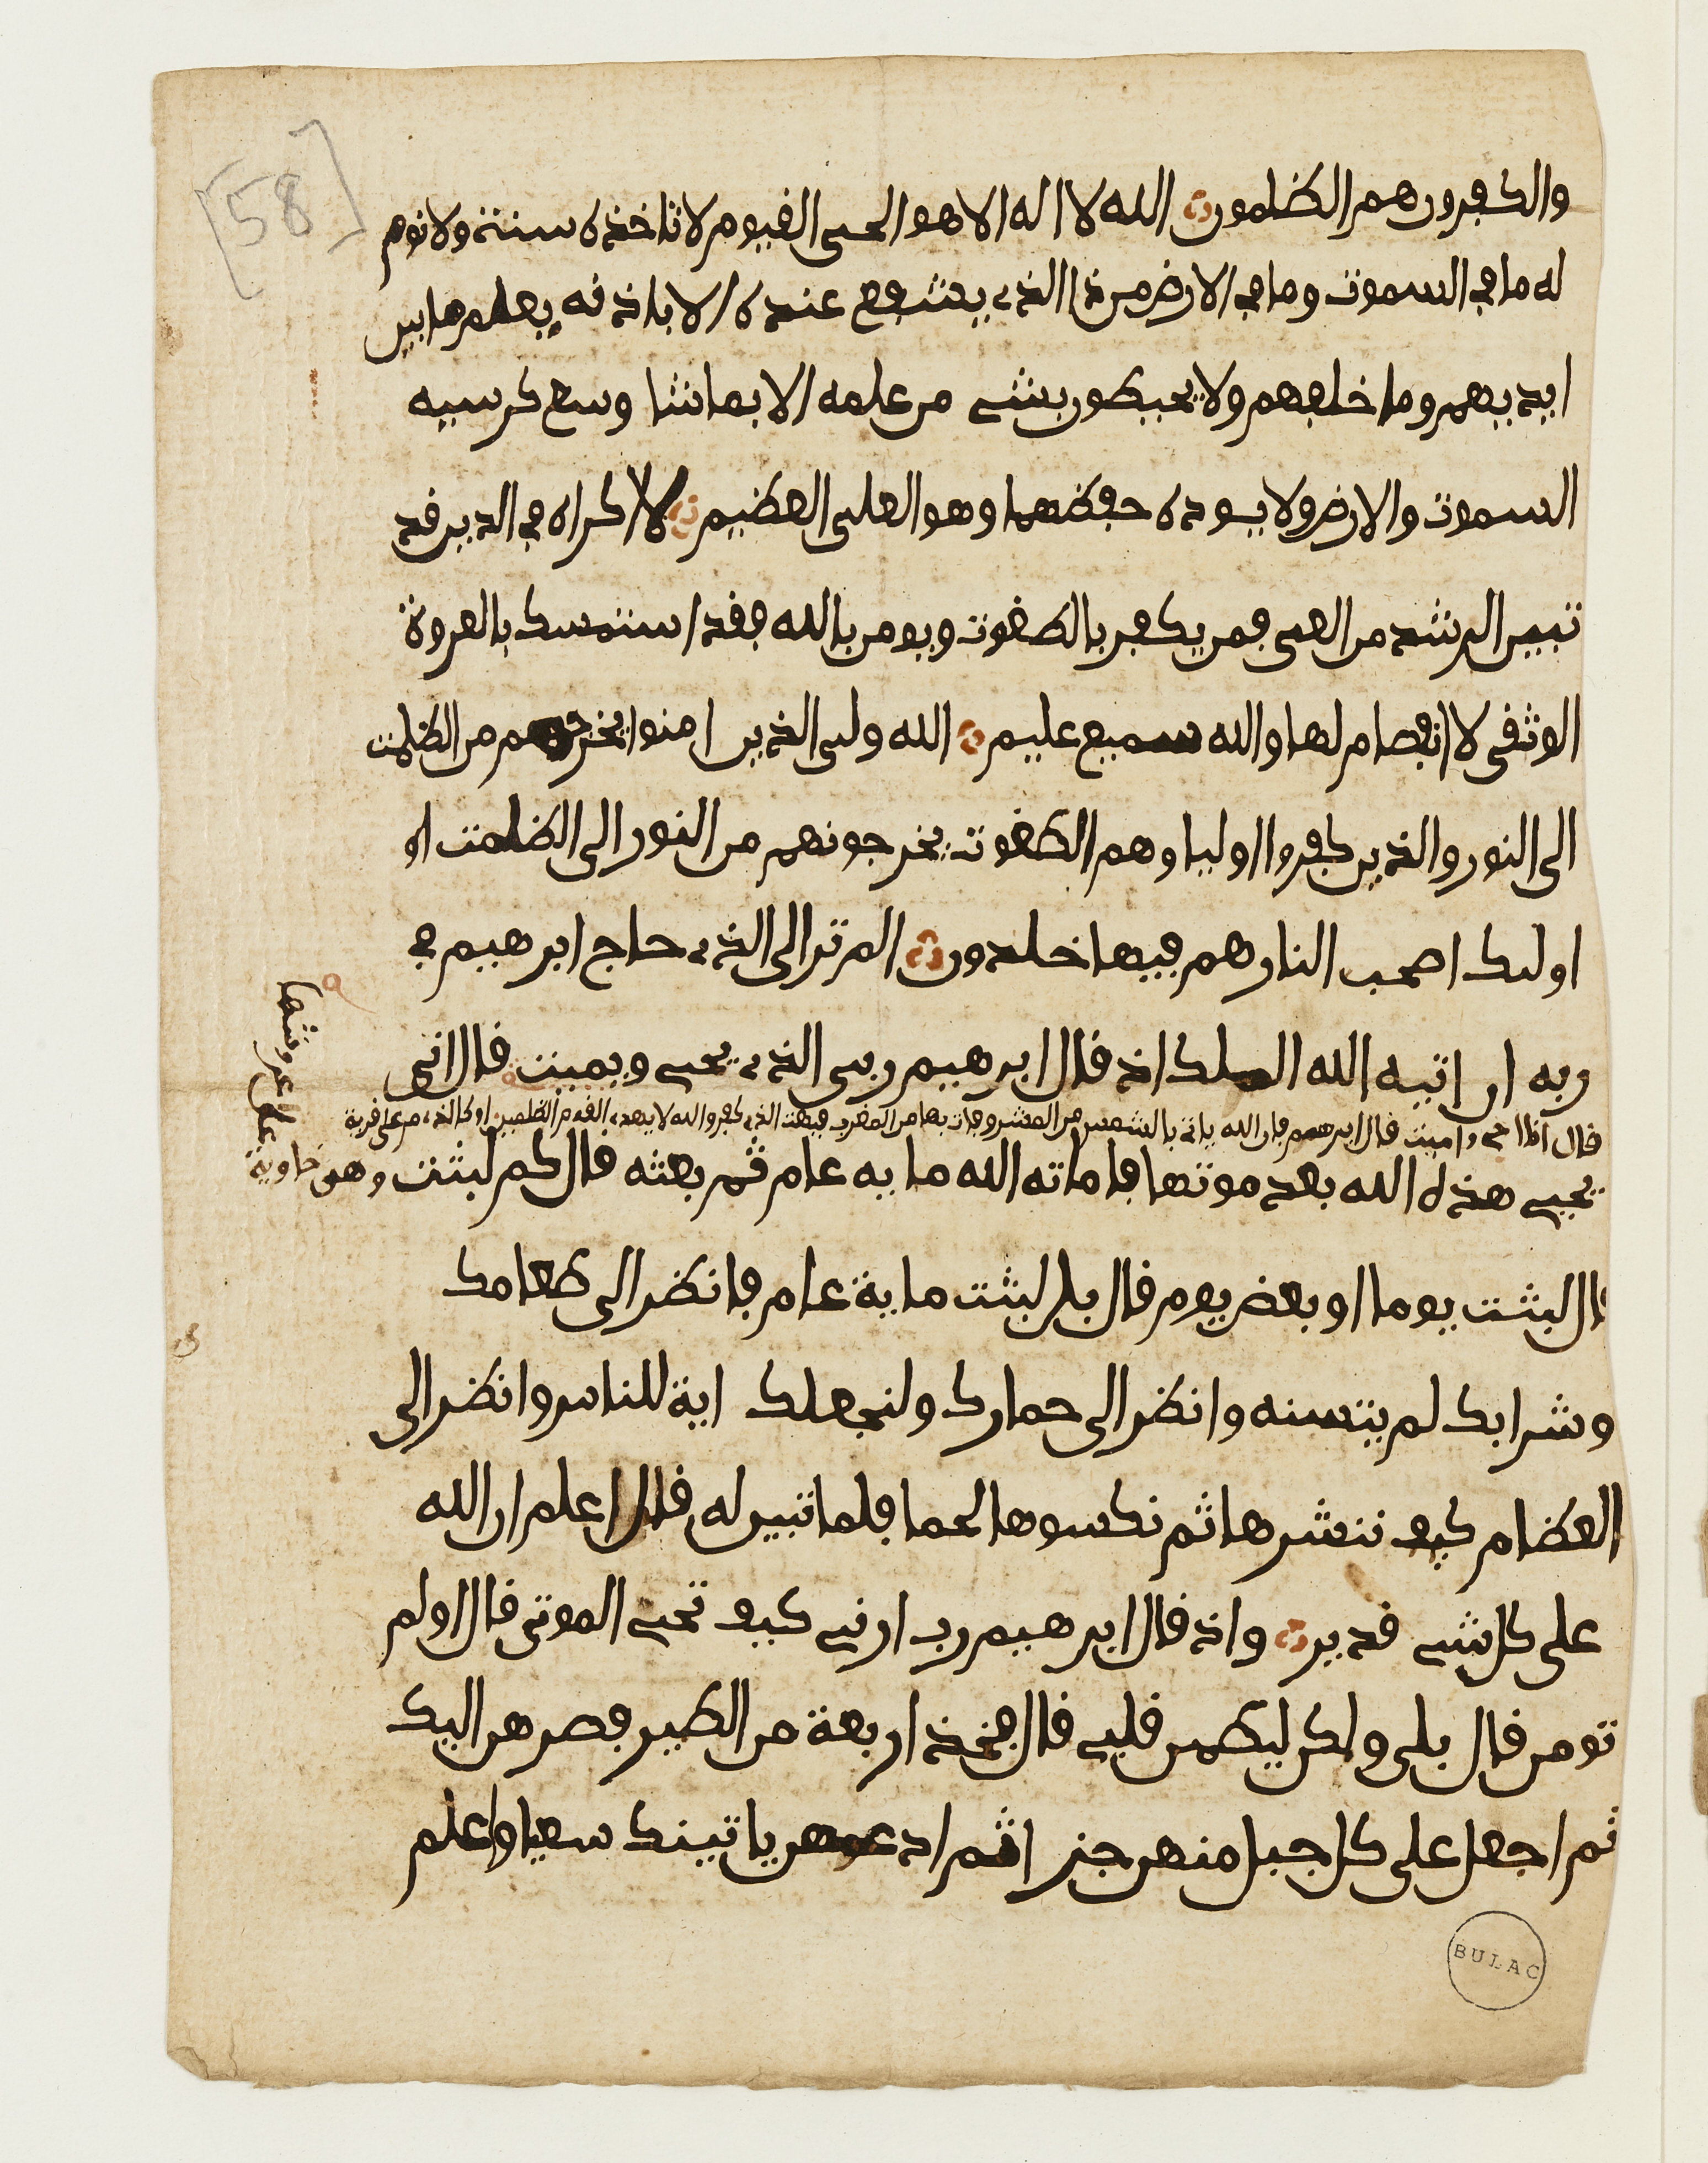 [58]
والكفرون هم الظلمون الله لا اله الا هو الحي القيوم لا تاخذه سنة ولا نوم
له ما في السموت وما في الارض من ذا الذي يشفع عنده الا باذنه يعلم ما بين
ايديهم وما خلفهم ولا يحيطون بشي من علمه الا بما شا وسع كرسيه
السموت والارض ولا يوده حفظهما وهو العلي العظيم لا اكراه في الدين قد
تبين الرشد من الغي فمن يكفر بالطغوت ويومن بالله فقد استمسك بالعروة
الوثقى لا انفصام لها والله سميع عليم الله ولي الذين امنوا يخرجهم من الظلمت
الى النور والذين كفروا اولياوهم الطغوت يخرجونهم من النور الى الظلمت او
اوليك اصحب النار هم فيها خلدون الم تر الى الذي حاج ابرهيم في
ربه ان اتيه الله الملك اذ قال ابرهيم ربي الذي يحي ويميت قال اني
قال انا احي واميت قال ابرهيم فان الله ياتي بالشمس من المشرق فات بها من المغرب فبهت الذي كفر والله لا يهدي القوم الظلمين او كالذي مر على قرية
وهي خاوية
على عروشها
يحيي هذه الله بعد موتها فاماته الله ماية عام ثم بعثه قال كم لبثت
قال لبثت يوما او بعض يوم قال بل لبثت ماية عام فانظر الى طعامك
وشرابك لم يتسنه وانظر الى حمارك ولنجعلك اية للناس وانظر الى
العظام كيف ننشرها ثم نكسوها لحما فلما تبين له قال اعلم ان الله
على كل شي قدير واذ قال ابرهيم رب ارني كيف تحي الموتى قال اولم
تومن قال بلى ولكن ليطمين قلبي قال فخذ اربعة من الطير فصرهن اليك
ثم اجعل على كل جبل منهن جزا ثم ادعهن ياتينك سعيا واعلم
BULAC